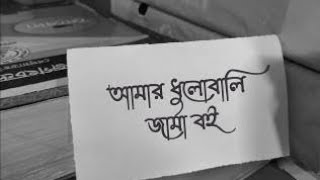 আমার ধুলোবালি
জামা বই